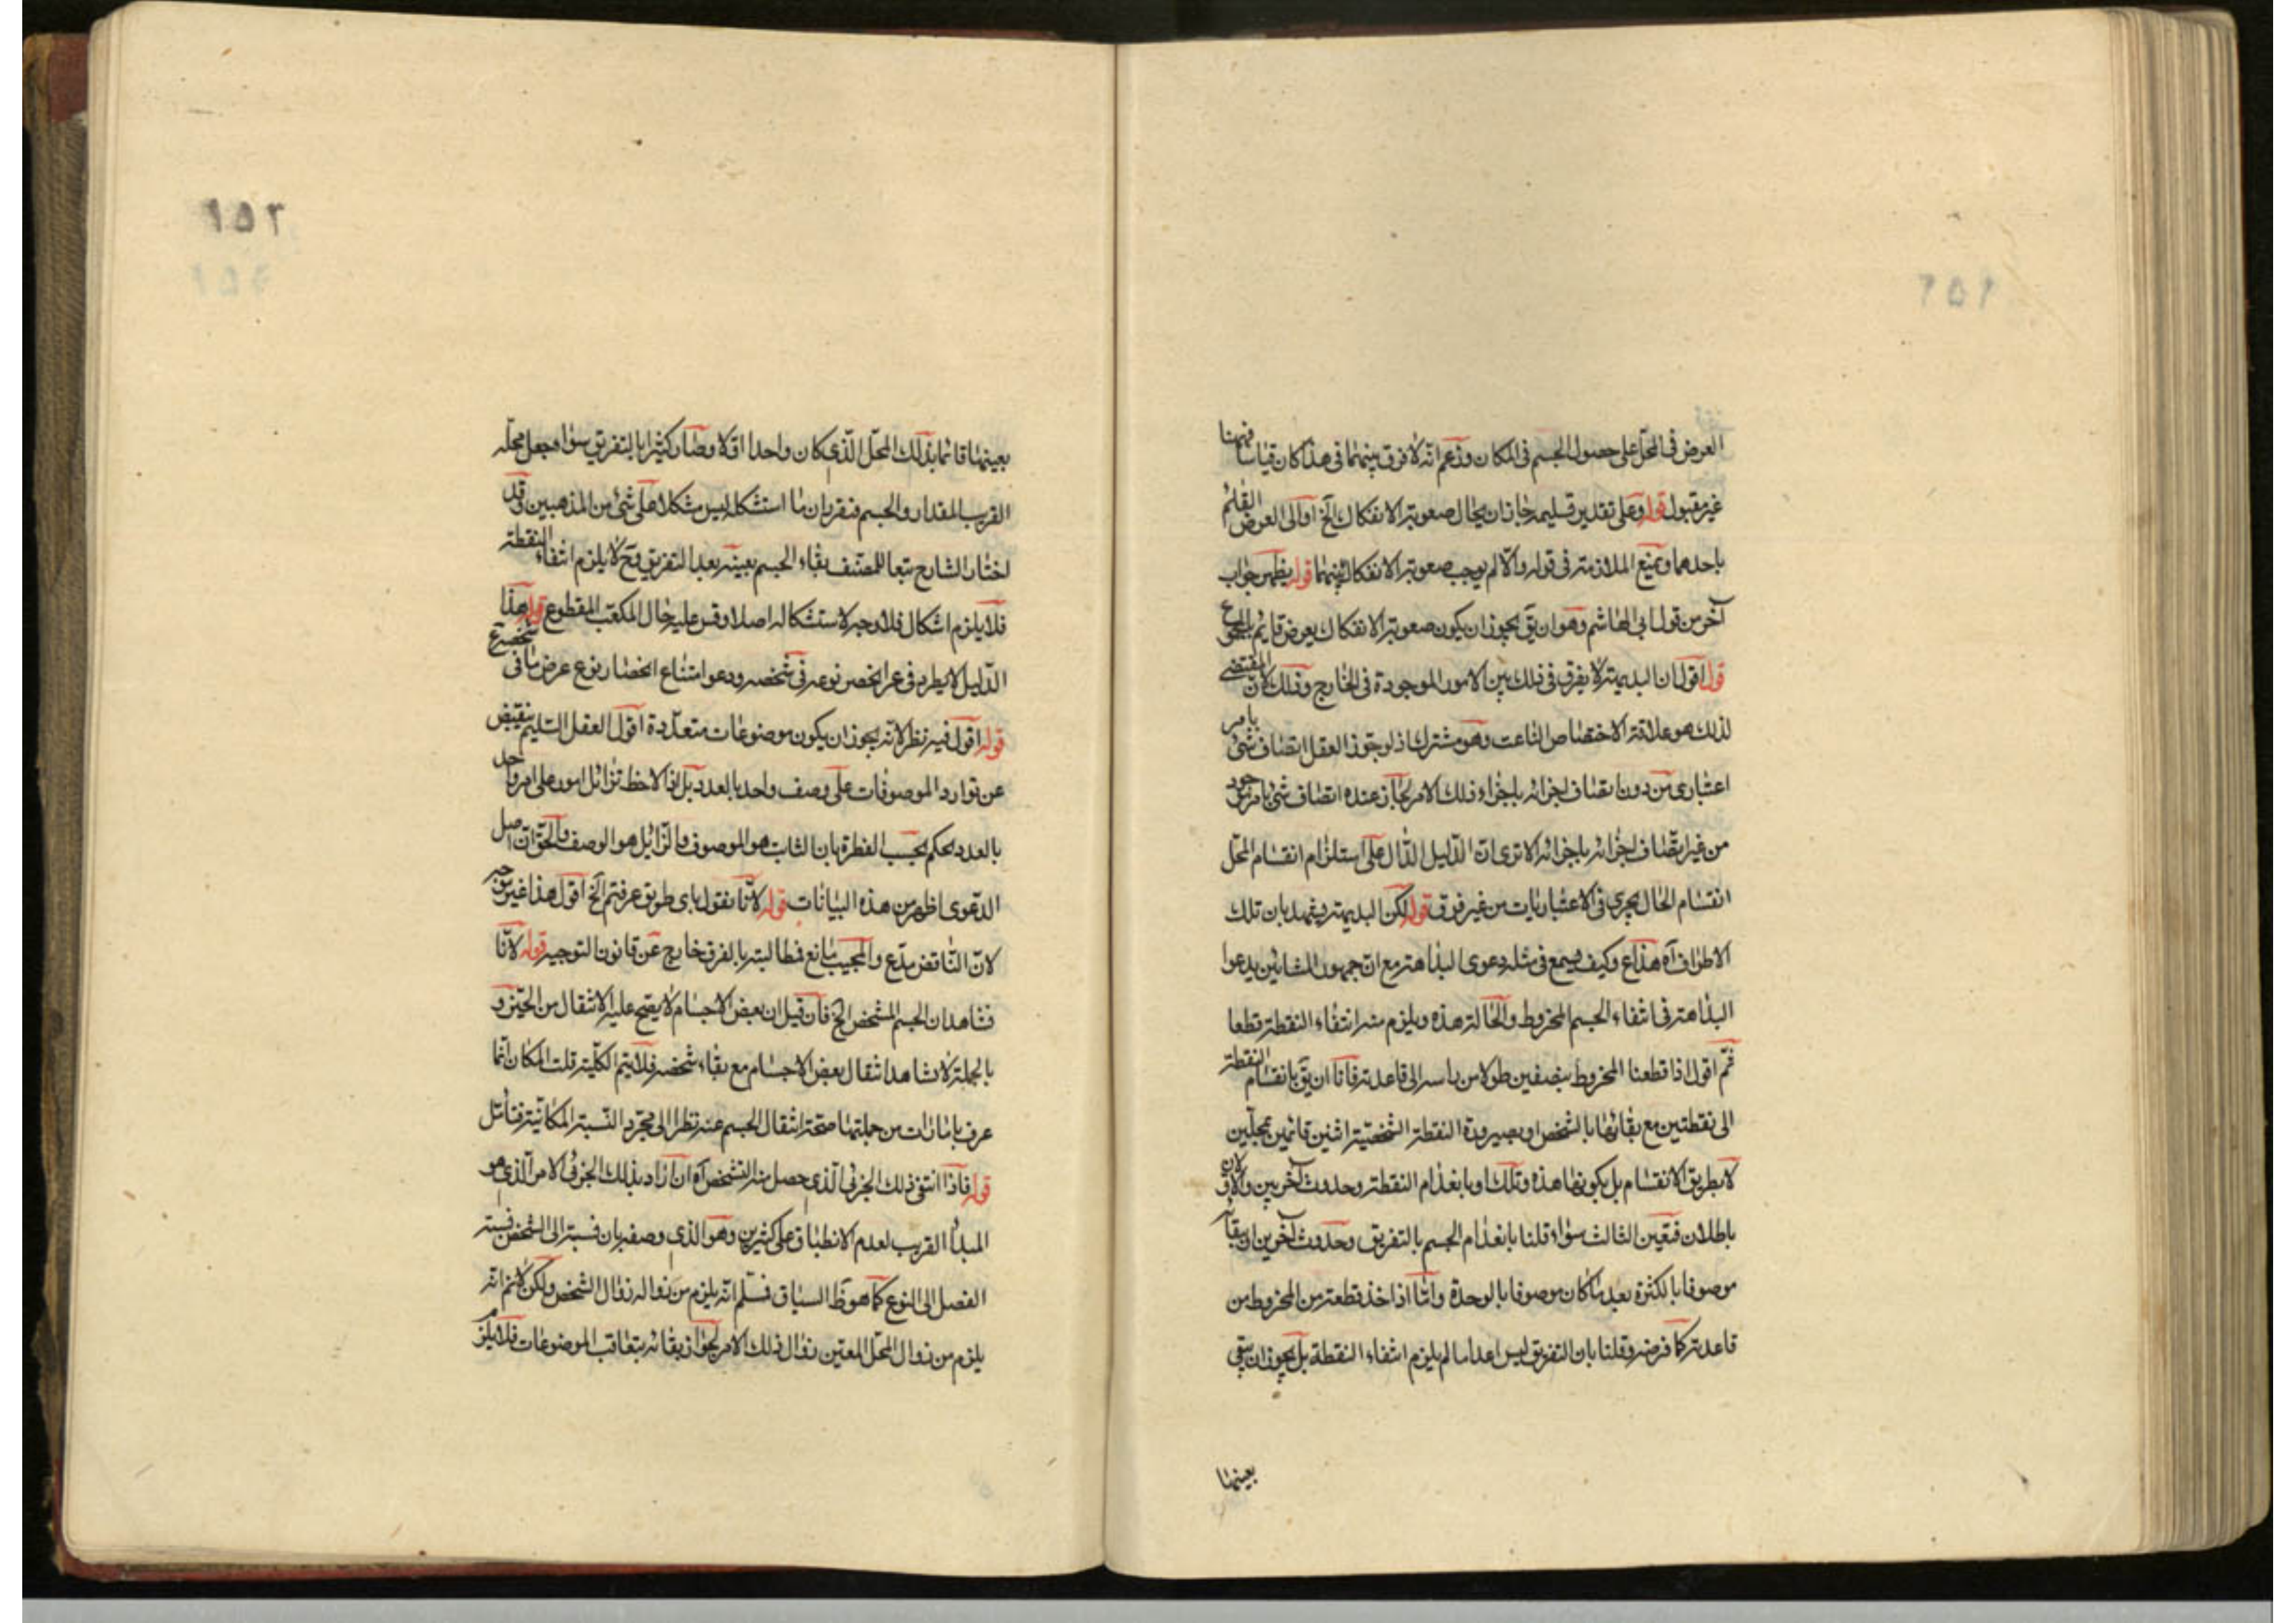 العرض فى المحل على حصول الجسم فى المكان وزعم انه لا فرق بينهما فى هذا كان قياسا فقهيا
غير مقبول قوله وعلى تقدير تسليمه جاز ان يحال صعوبة الانفكاك الخ او الى العرض القائم
باحدهما ويمنع الملازمة فى قوله والا لم يوجب صعوبة الانفكاك بينهما قوله يظهر جواب
آخر من قول ابى الهاشم وهو ان يق يجوز ان يكون صعوبة الانفكاك بعرض قائم بالمجموع
قوله اقول ان البديهة لا يفرق فى ذلك بين الامور الموجودة فى الخارج وذلك لان المقتضى
لذلك هو علاقة الاختصاص الناعت وهو مشترك اذ لو جوز العقل اتصاف شئ بامر
اعتبارى من دون اتصاف اجزائه باجزاء ذلك الامر لجاز عنده اتصاف شئ بامر موجود
من غير اتصاف اجزائه باجزائه الا ترى ان الدليل الدال على استلزام انقسام المحل
انقسام الحال يجرى فى الاعتباريات من غير فرق قوله لكن البديهة يشهد بان تلك
الاطراف آه هذا ع وكيف يسمع فى مثله دعوى البداهة مع ان جمهور المشائين يدعوا
البداهة فى انتفاء الجسم المخروط والحالة هذه ويلزم منه انتفاء النقطة قطعا
ثم اقول اذا قطعنا المخروط بنصفين طولا من راسه الى قاعدته فاما ان يق بانقسام النقطة
الى نقطتين مع بقائها بالشخص او بصيرورة النقطة الشخصية اثنين قائمين بمحلين
لا بطريق الانقسام بل بكونها هذه وتلك او بانعدام النقطة وحدوث آخريين والاولان
باطلان فتعين الثالث سواء قلنا بانعدام الجسم بالتفريق وحدوث آخرين او ببقائه
موصوفا بالكثرة بعد ما كان موصوفا بالوحدة واما اذا اخذ قطعة من المخروط من
قاعدته كما فرضه وقلنا بان التفريق ليس اعداما لم يلزم انتفاء النقطة بل يجوز ان يبقى
بعينها
٢٥٢
بعينها قائما بذلك المحل الذى كان واحدا اولا وصار كثيرا بالتفريق سواء جعل محله
القريب المقدار والجسم فتقريبان ما استشكل ليس مشكلا على شئ من المذهبين قد
اختار الشارح تبعا للمصنف بقاء الجسم بعينه بعد التفريق وح لا يلزم انتفاء النقطة
فلا يلزم اشكال فلا وجه لاستشكاله اصلا وقس عليه حال المكعب المقطوع قوله هذا
الدليل لا يطرد فى عرض انحصر نوعه فى شخصه ودعوا امتناع انحصار نوع عرض ما فى شخصه ع
قوله اقول فيه نظر لانه يجوز ان يكون موضوعات متعددة اقول العقل السليم ينقبض
عن توارد الموصوفات على وصف واحد بالعدد بل اذا لاحظ تزائل امور على امر واحد
بالعدد يحكم بحسب الفطرة بان الثابت هو الموصوف والزايل هو الوصف والحق ان اصل
الدعوى اظهر من هذه البيانات قوله لانا نقول باى طريق عرفتم الخ اقول هذا غير موجه
لان الناقض مدع والمجيب مانع فمطالبته بالفرق خارج عن قانون التوجيه قوله لانا
نشاهد ان الجسم المشخص الخ فان قيل ان بعض الاجسام لا يصح عليه الانتقال من الحيز و
بالجملة لا نشاهد انتقال بعض الاجسام مع بقاء شخصه فلا يتم الكلية قلت المكان انما
عرف بامارات من جملتها صحة انتقال الجسم عنه نظرا الى مجرد النسبة المكانية فتامل
قوله فاذا انتفى ذلك الجزئى الذى حصل منه التشخص آه ان اراد بذلك الجزئى الامر الذى هو
المبدأ القريب لعدم الانطباق على كثيرين وهو الذى وصفه بان نسبته الى الشخص نسبة
الفصل الى النوع كما هو ظ السياق فسلم انه يلزم من زواله زوال الشخص ولكن لا نم انه
يلزم من زوال المحل المعين زوال ذلك الامر لجواز بقائه بتعاقب الموضوعات فلا يلزم